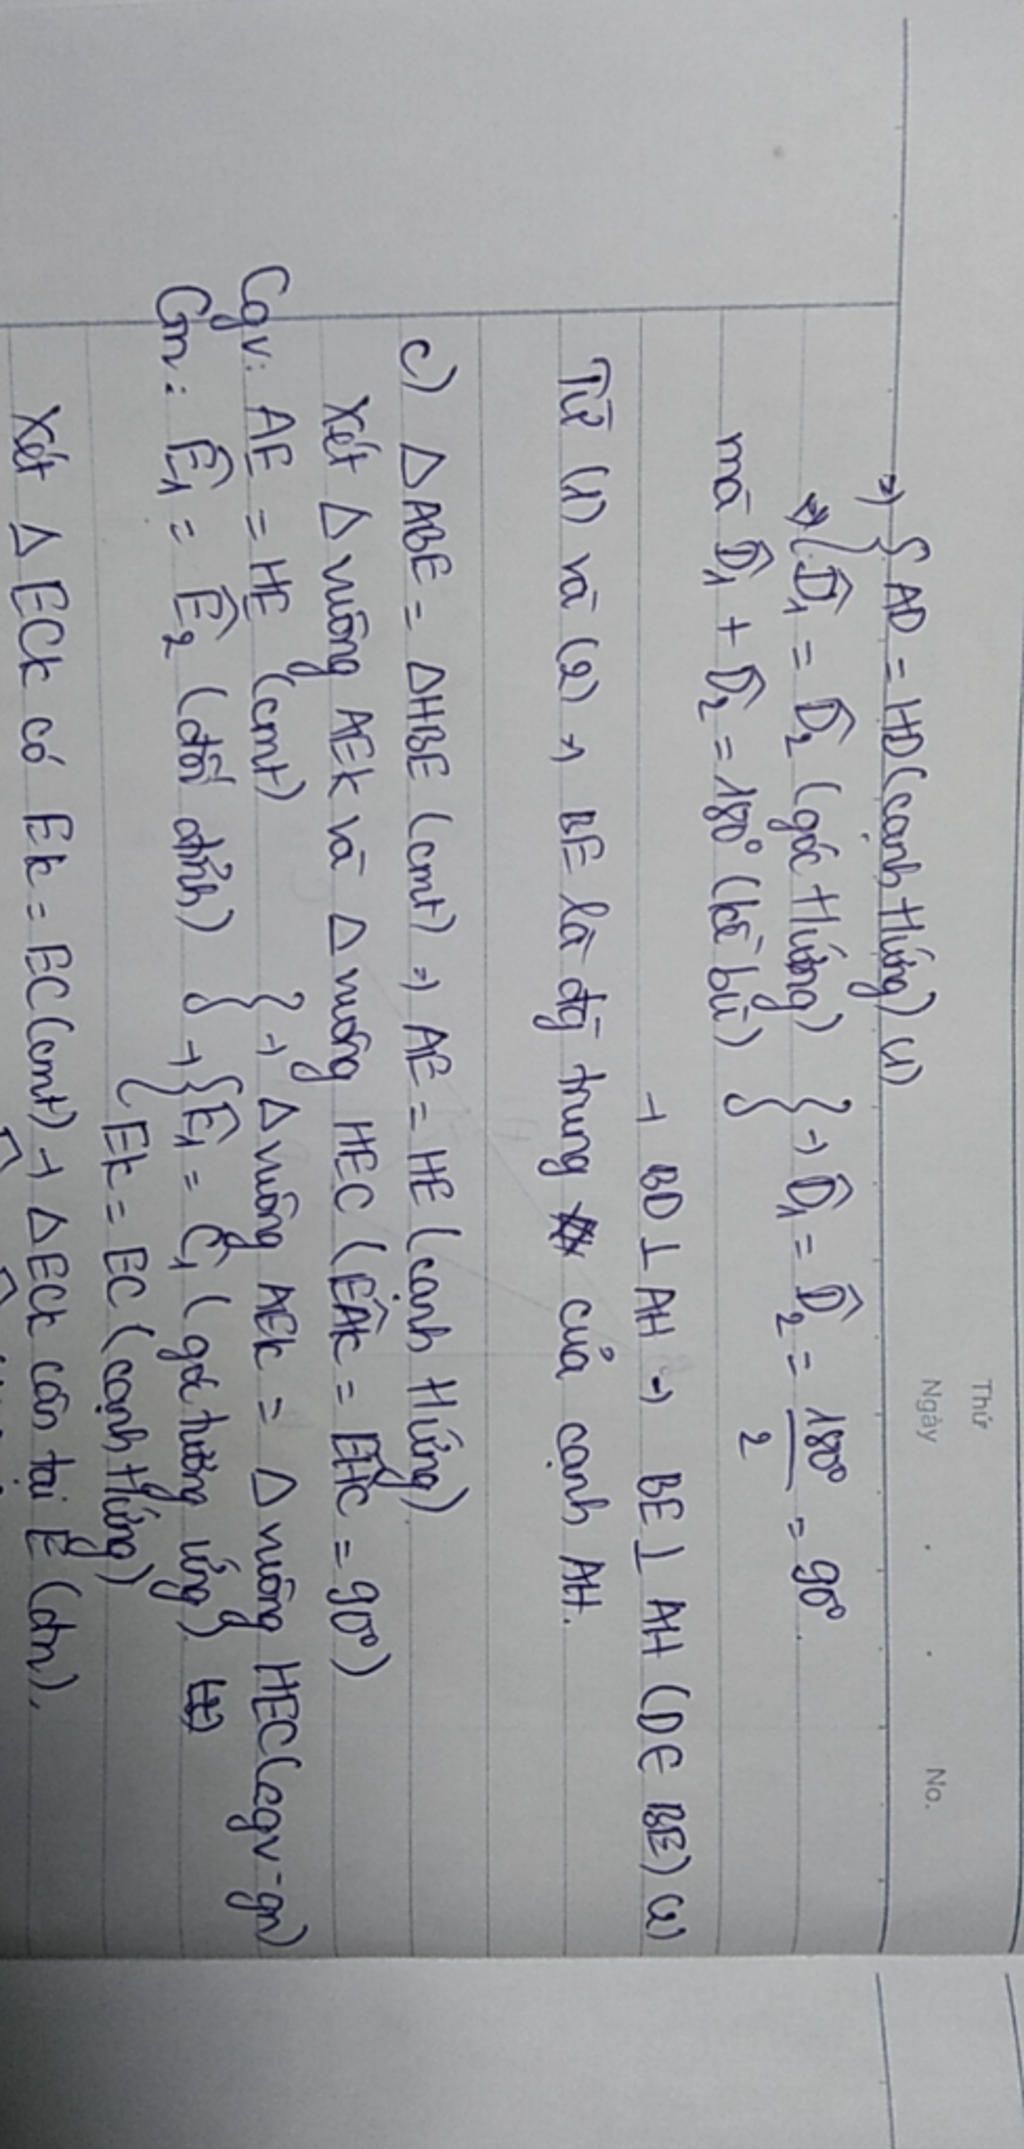 Thứ
Ngày . . No.
=> { AD = HD (cạnh t/ứng) (1)
D̂₁ = D̂₂ (góc t/ứng) } → D̂₁ = D̂₂ = 180°/2 = 90°.
mà D̂₁ + D̂₂ = 180° (kề bù)
→ BD ⊥ AH → BE ⊥ AH (D ∈ BE) (2)
Từ (1) và (2) → BE là đg trung của cạnh AH.
c) Δ ABE = ΔHBE (cmt) => AE = HE (cạnh t/ứng).
Xét Δ vuông AEK và Δ vuông HEC (EÂK = EĤC = 90°)
Cgv: AE = HE (cmt) } → Δ vuông AEK = Δ vuông HEC (cgv-gn)
Gn: Ê₁ = Ê₂ (đối đỉnh) → { Ê₁ = Ĉ₁ (góc tương ứng).
EK = EC (cạnh t/ứng)
Xét Δ ECK có EK = EC (cmt) → Δ ECK cân tại E (đn).